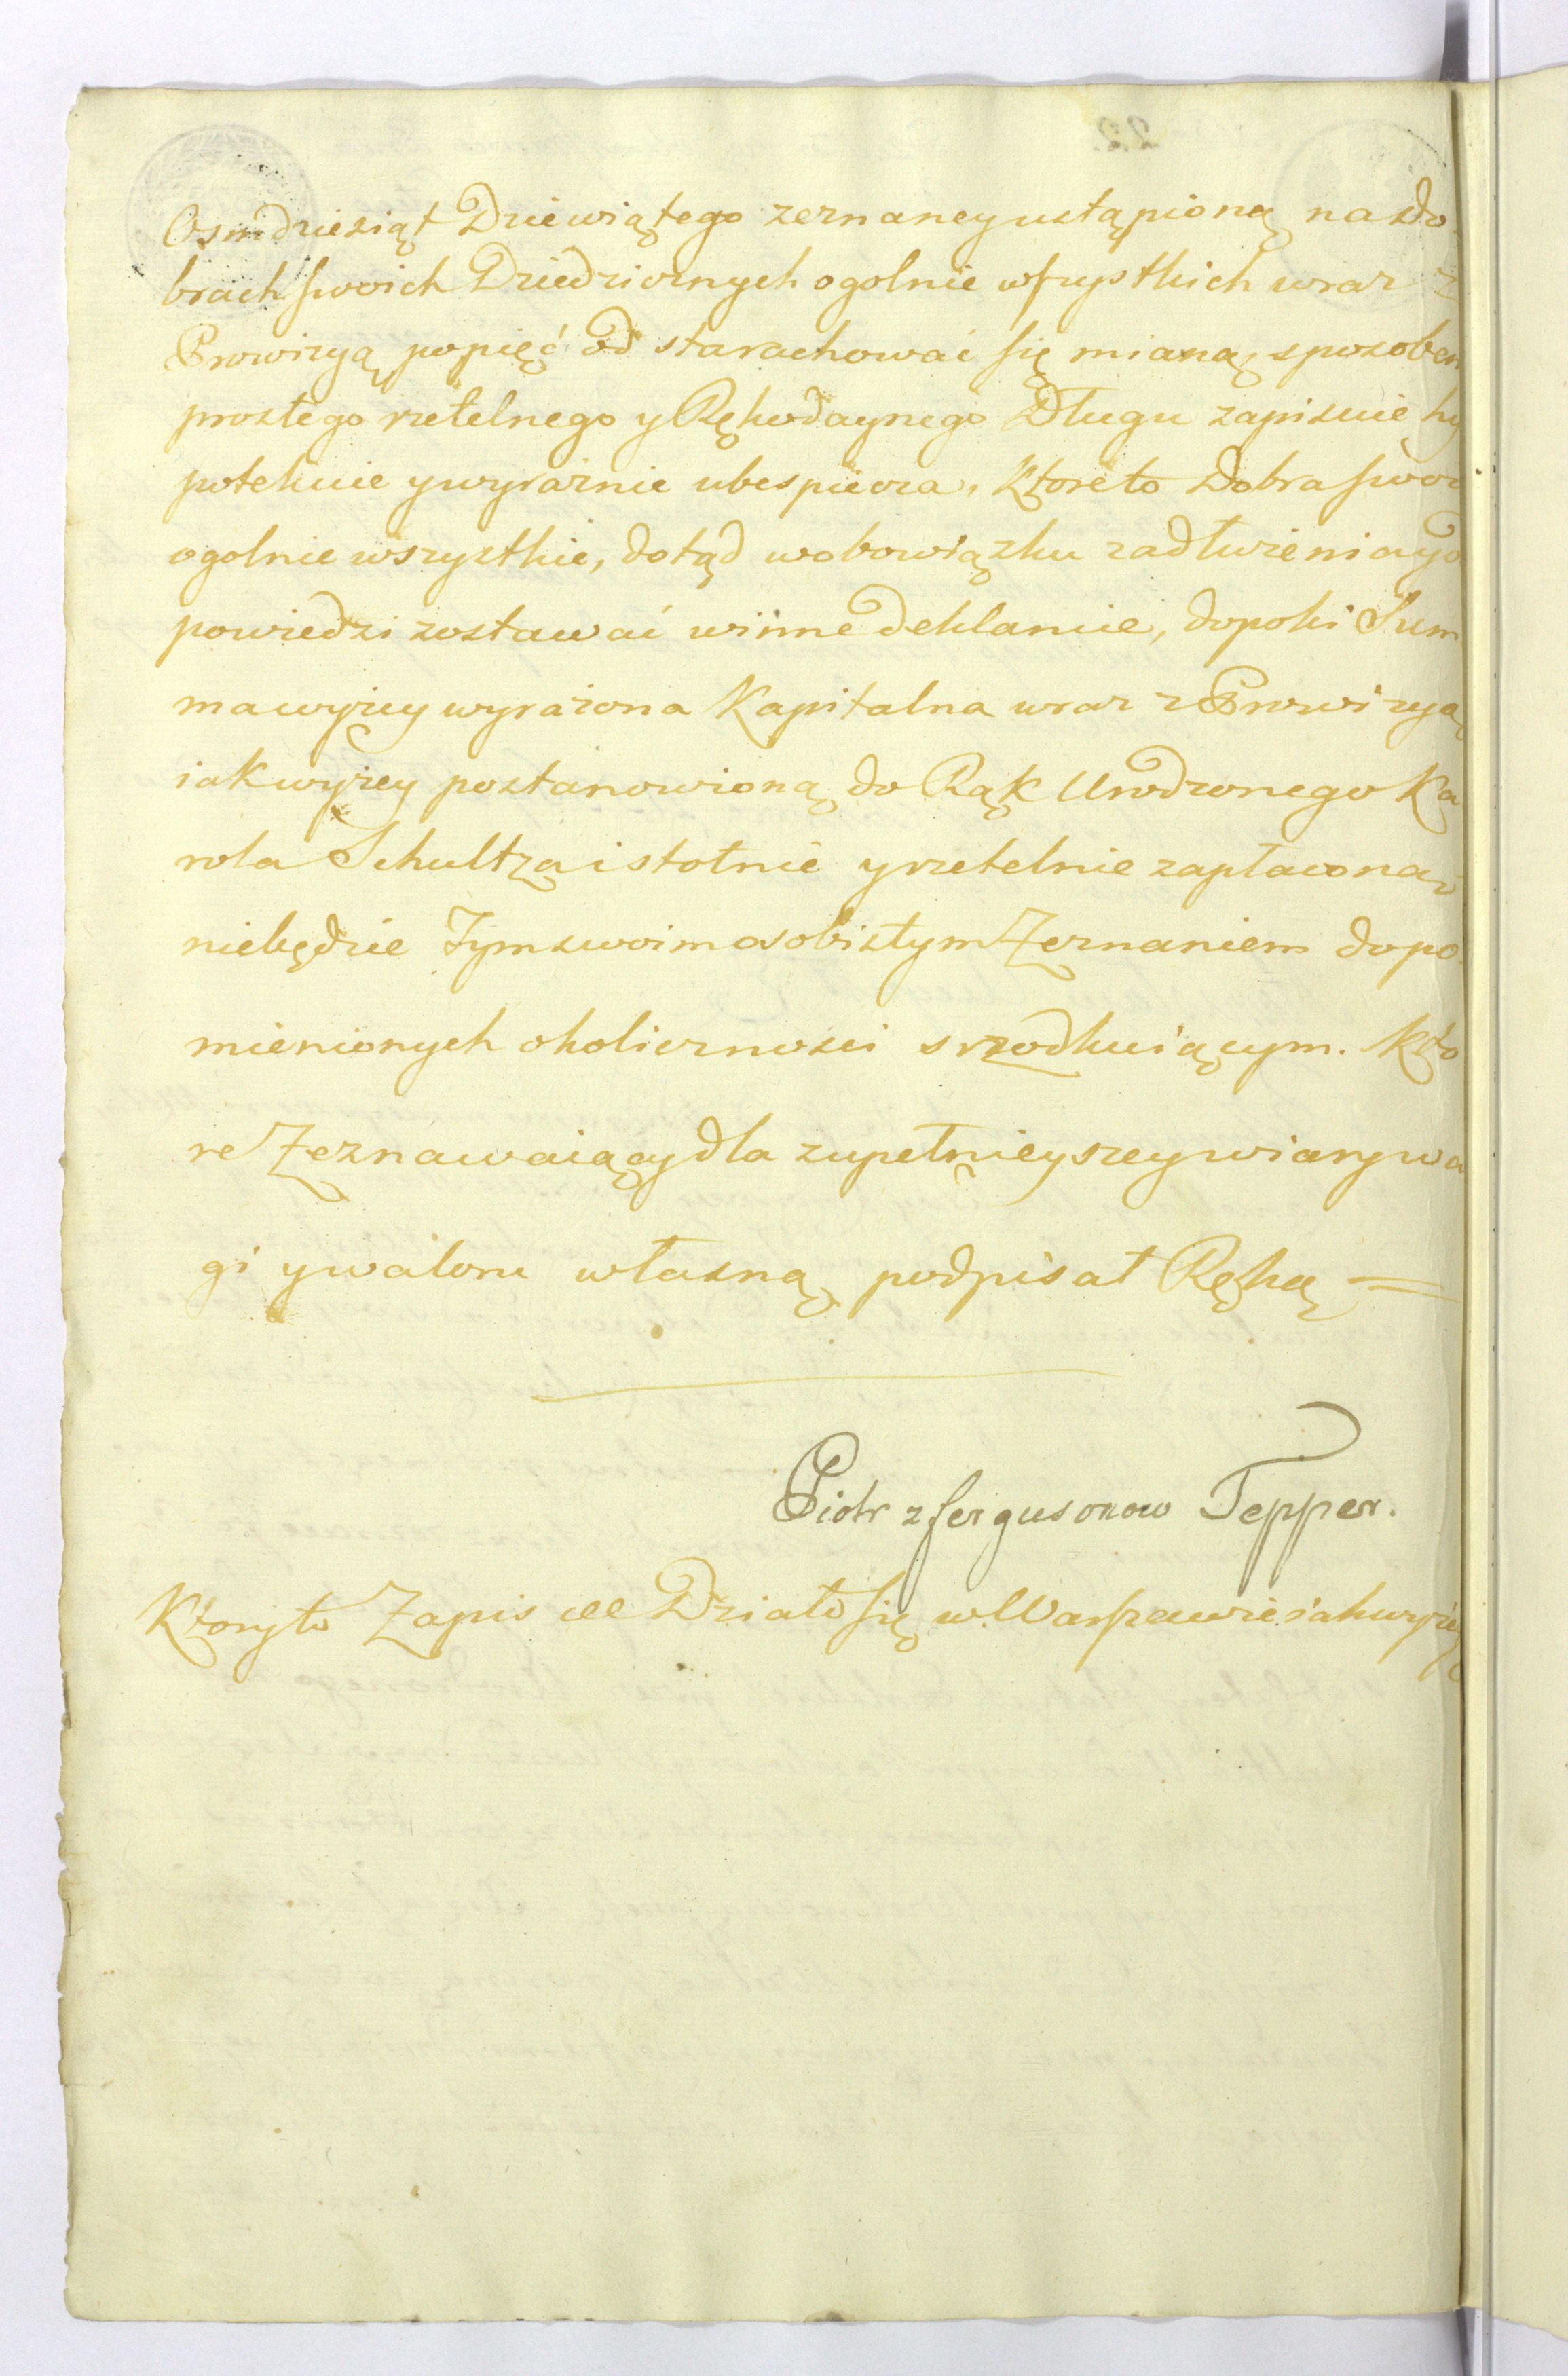 Osmdziesiąt Dziewiątego zeznaney ustąpioną na Do
brach swoich Dziedzicznych ogolnie wszystkich wraz z
Prowizyą po pięć od sta rachować się maiącą, sposobem
prostego rzetelnego y Rękodaynego Długu zapisuie hy
potekuie y wyraźnie ubespiecza, Ktore to Dobra swoie
ogolnie wszystkie, dotąd w obowiązku zadłużenia y o
powiedzi zostawać winne deklaruie, dopoki Sum
ma wyżey wyrażona Kapitalna wraz z Prowizyą
iak wyżey postanowioną do Rąk Urodzonego Ka
rola Schultza istotnie y rzetelnie zapłaconą
niebędzie Tym swoim osobistym Zeznaniem do po
mienionych okoliczności srzodkuiącym. Kto
re Zeznawaiący dla zupełnieyszey wiary wa
gi y waloru własną podpisał Ręką =
Piotr z fergusonow Tepper.
Ktory to Zapis Działo się w Warszawie iak wyżey